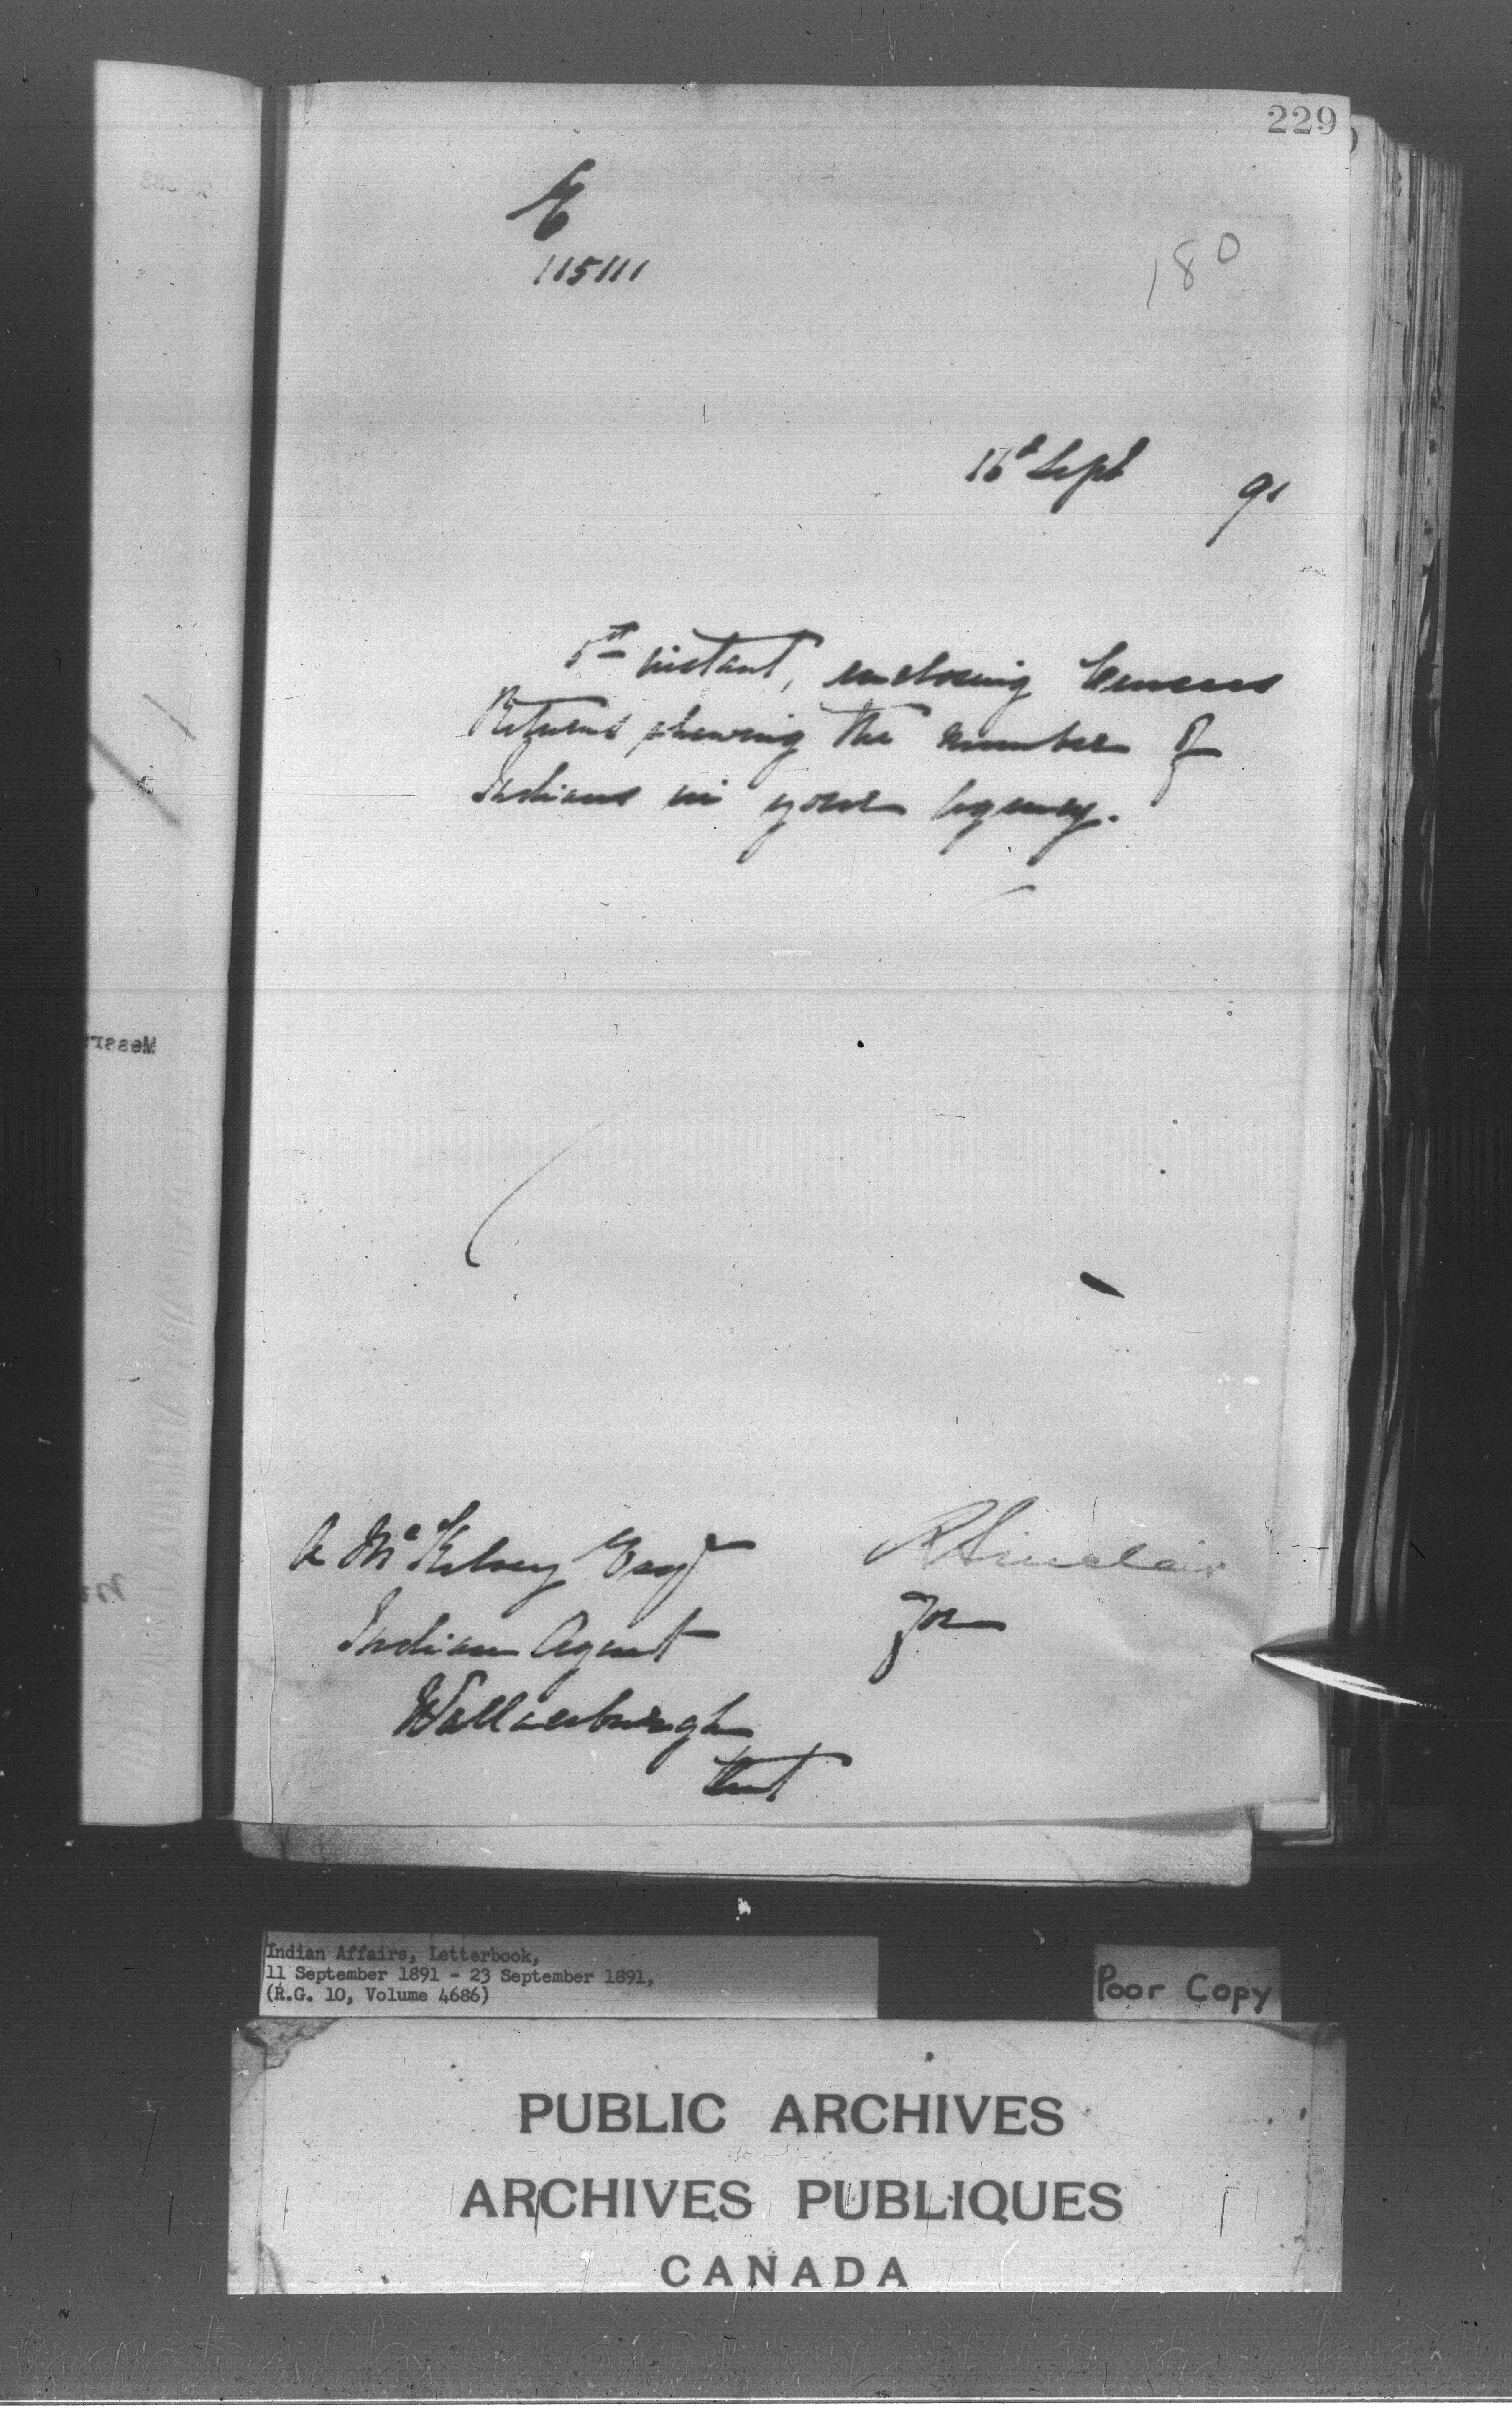 229
E
115111
180
16th Sept 91
5th instant, enclosing Census
Returns shewing the number of
Indians in your Agency.
A McKelvey Esqr
Indian Agent
Wallaceburgh
Ont
R Sinclair
For
Messr
Indian Affairs, Letterbook,
11 September 1891 - 23 September 1891,
(R.G. 10, Volume 4686)
Poor Copy
PUBLIC ARCHIVES
ARCHIVES PUBLIQUES
CANADA